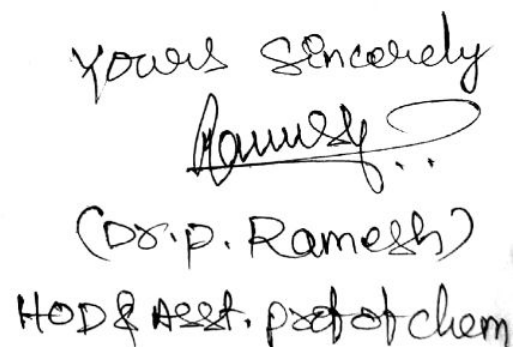 Yours Sincerely
Ramesh
(Dr.P. Ramesh)
HOD & Asst. prof of chem